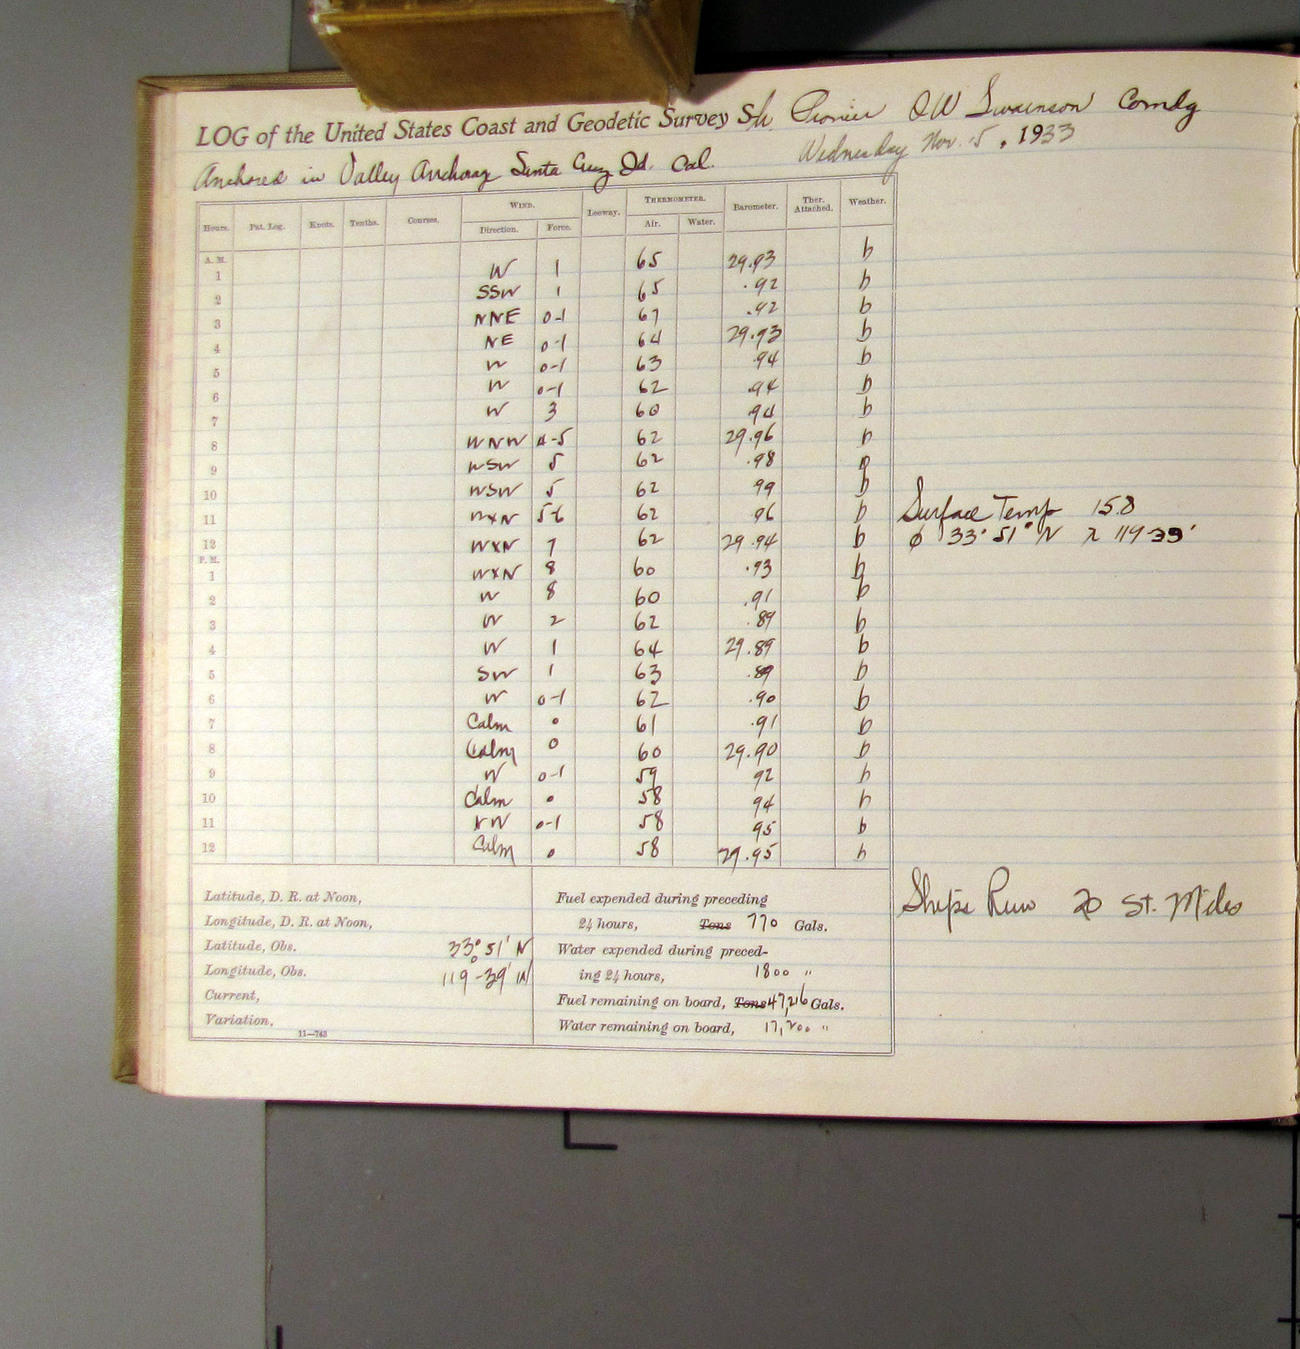 LOG of the United States Coast and Geodetic Survey Sh Pionier OW Swainson Comdg
Anchored in Valley Anchorag Santa Cruz Id. Cal. Wednesday Nov. 15, 1933
Hours. Pat. Log. Knots. Tenths. Courses. WIND. Leeway. THERMOMETER. Barometer. Ther. Attached. Weather.
Direction. Force. Air. Water.
A. M.
1 W 1 65 29.93 b
2 SSW 1 65 .92 b
3 NNE 0-1 67 .92 b
4 NE 0-1 64 29.93 b
5 W 0-1 63 .94 b
6 W 0-1 62 .94 b
7 W 3 60 .94 b
8 WNW 4-5 62 29.96 b
9 WSW 5 62 .98 b
10 WSW 5 62 99 b
11 WXN 5-6 62 96 b Surface Temp 15.8
12 WXN 7 62 29.94 b φ 33° 51' N λ 119-39'
P. M.
1 WXN 8 60 .93 b
2 W 8 60 .91 b
3 W 2 62 .89 b
4 W 1 64 29.89 b
5 SW 1 63 .89 b
6 W 0-1 62 .90 b
7 Calm 0 61 .91 b
8 Calm 0 60 29.90 b
9 W 0-1 59 92 b
10 Calm 0 58 94 b
11 0-1 58 95 b
12 Calm 0 58 29.95 b
Latitude, D. R. at Noon, Fuel expended during preceding Ship's Run 20 St. Miles
Longitude, D. R. at Noon, 24 hours, Tons 770 Gals.
Latitude, Obs. 33° 51' N Water expended during preced-
Longitude, Obs. 119-39' W ing 24 hours, 1800 "
Current, Fuel remaining on board, Tons 47,216 Gals.
Variation, Water remaining on board, 17,200 "
11—743